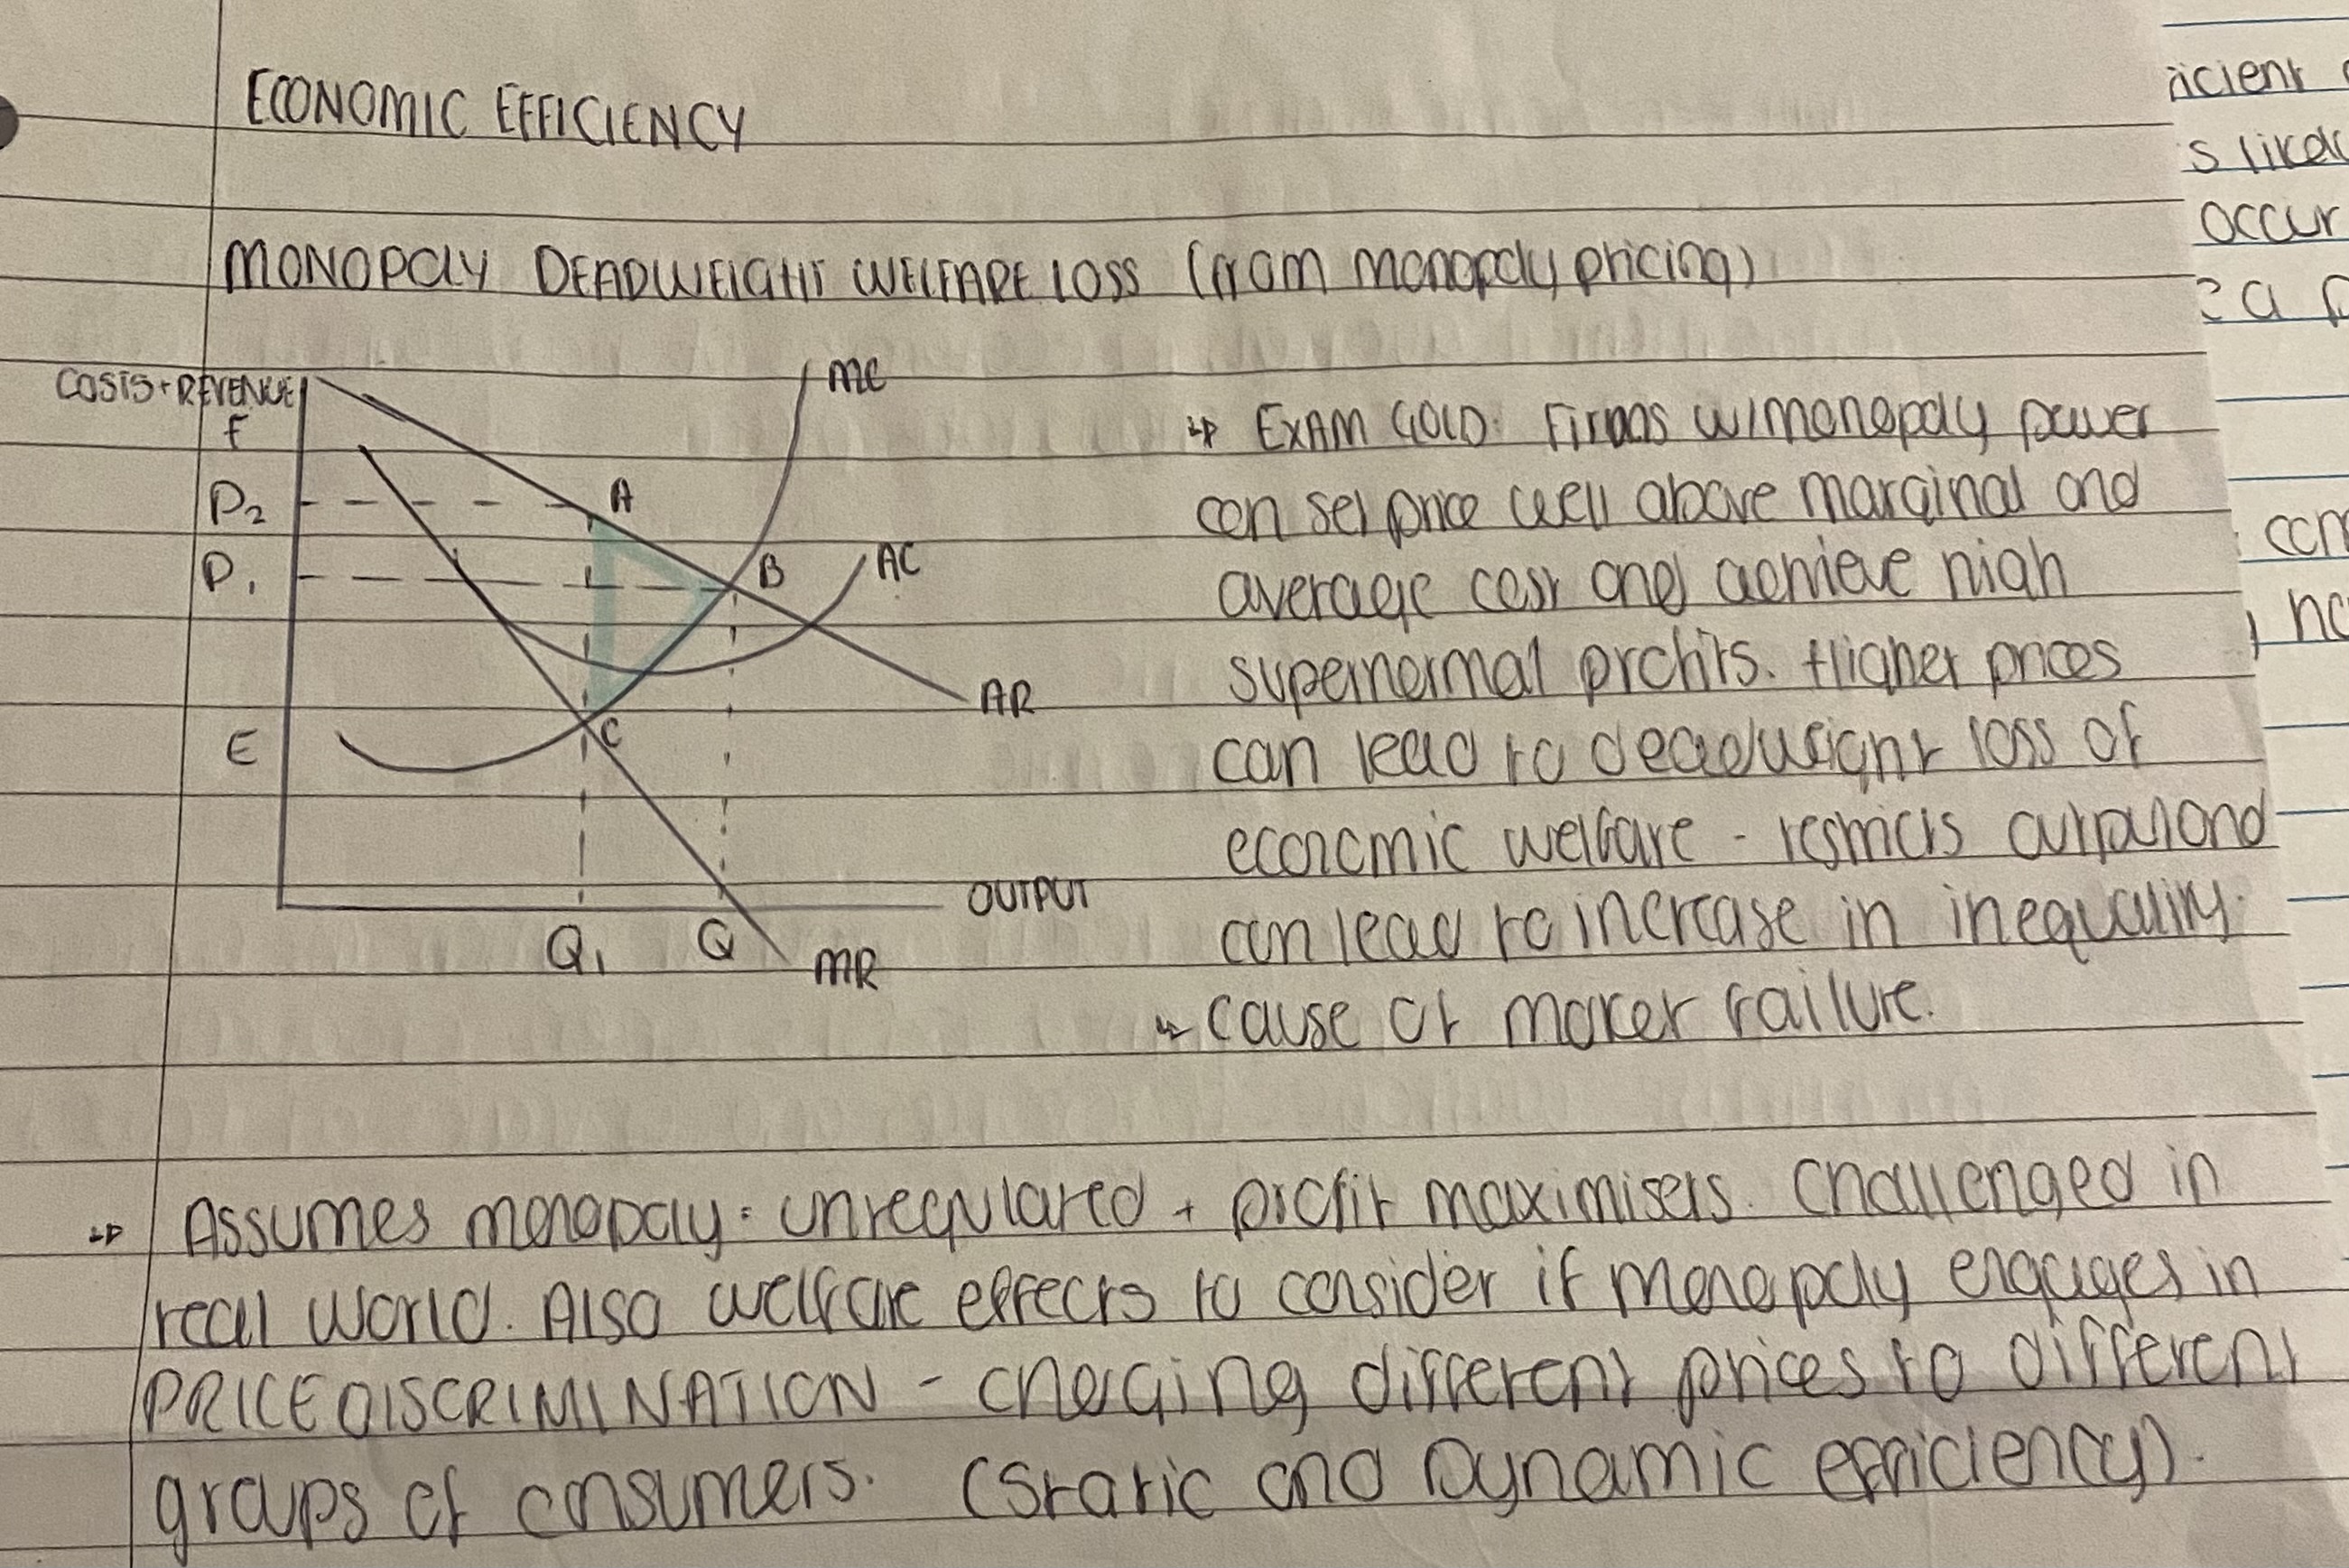 ECONOMIC EFFICIENCY
MONOPOLY DEADWEIGHT WELFARE LOSS (from monopoly pricing)
COSTS+REVENUE
F
P2
P1
E
A
B
C
MC
AC
AR
MR
OUTPUT
Q1
Q
↳ EXAM GOLD: Firms w/monopoly power
can set price well above marginal and
average cost and achieve high
supernormal profits. Higher prices
can lead to deadweight loss of
economic welfare - restricts output and
can lead to increase in inequality.
↳ cause of market failure.
↳ Assumes monopoly = unregulated + profit maximisers. Challenged in
real world. Also welfare effects to consider if monopoly engages in
PRICE DISCRIMINATION - charging different prices to different
groups of consumers. (Static and Dynamic efficiency).
icient
s likel
occur
a
com